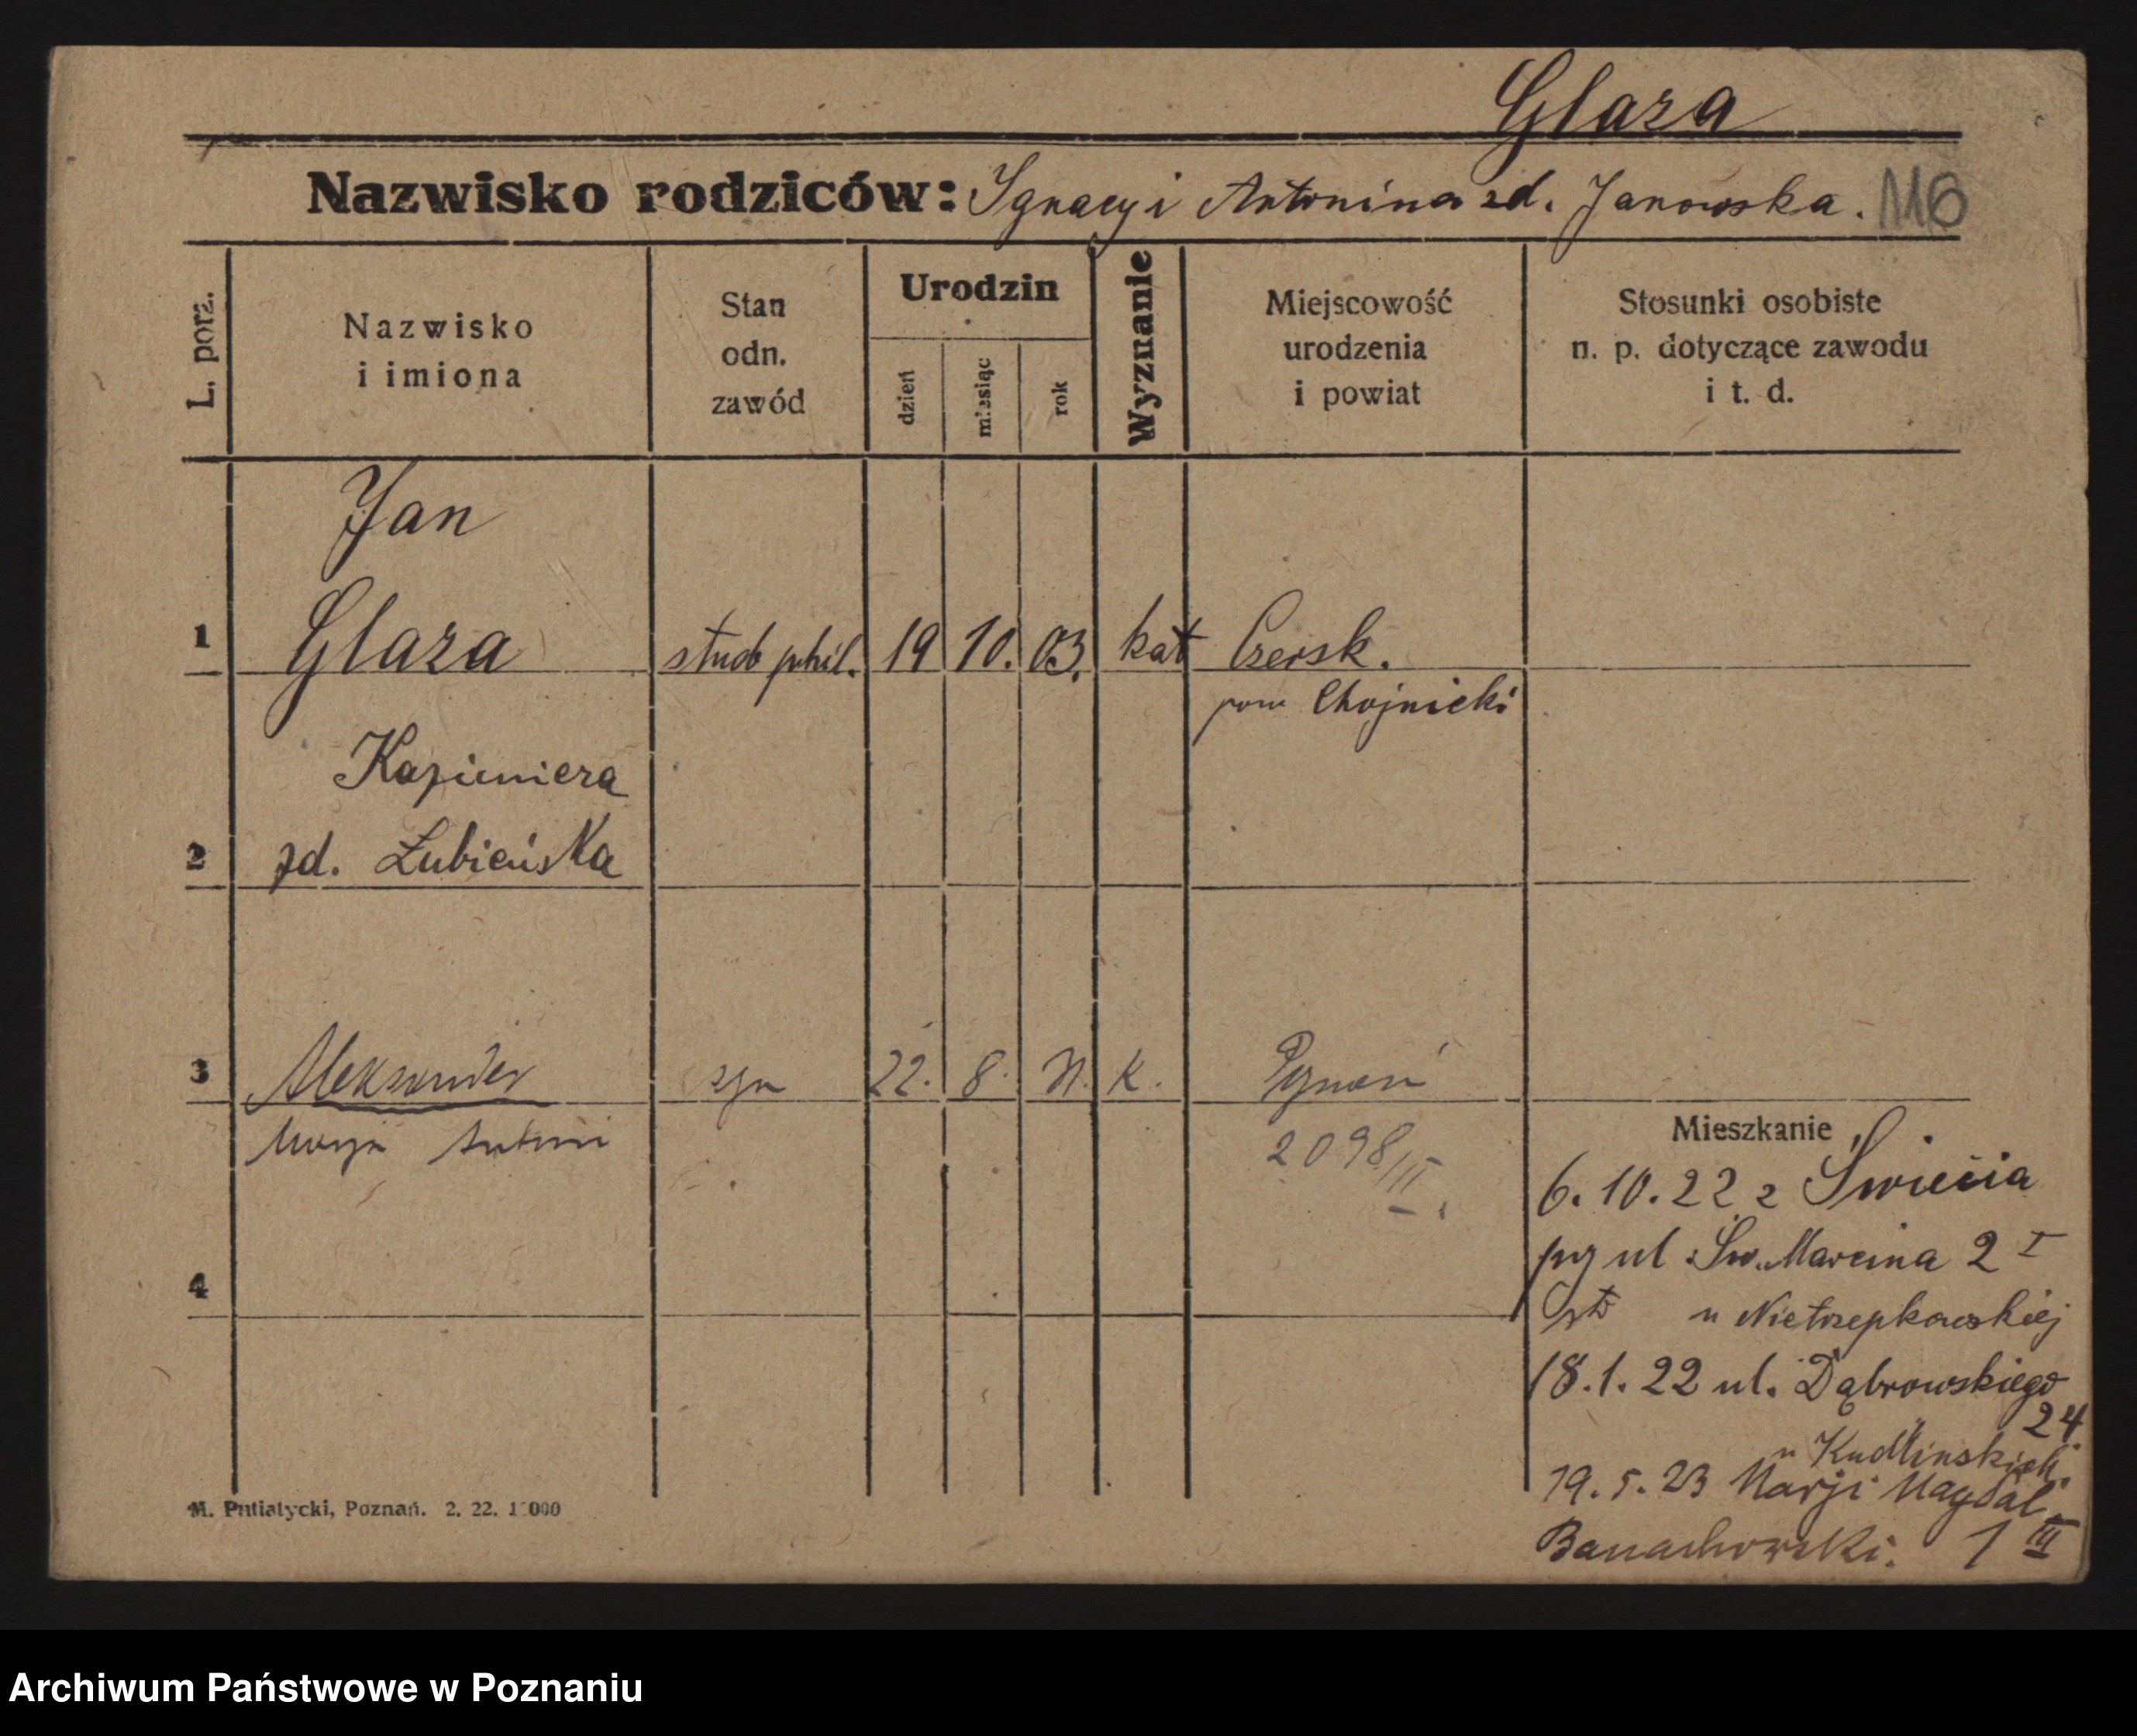 Glaza
Nazwisko rodziców: Ignacy i Antonina zd. Janowska. 116
L. porz.
Nazwisko
i imiona
Stan
odn.
zawód
Urodzin
dzień
miesiąc
rok
Wyznanie
Miejscowość
urodzenia
i powiat
Stosunki osobiste
n. p. dotyczące zawodu
i t. d.
Jan
1 Glaza stud phil. 19 10. 03. kat Czersk.
pow Chojnicki
Kazimiera
2 zd. Łubieńska
3 Aleksander syn 22. 8. K. Poznań
2098/III.
4
Mieszkanie
6.10.22 z Świecia
ul Św. Marcina 2 I
u Nietrzepkowskiej
18.1.22 ul. Dąbrowskiego
24
u Kudlinskich.
19.5.23 Marji Magdal.
Banachowski. 1 III
M. Putiatycki, Poznań. 2. 22. 1 000
Archiwum Państwowe w Poznaniu